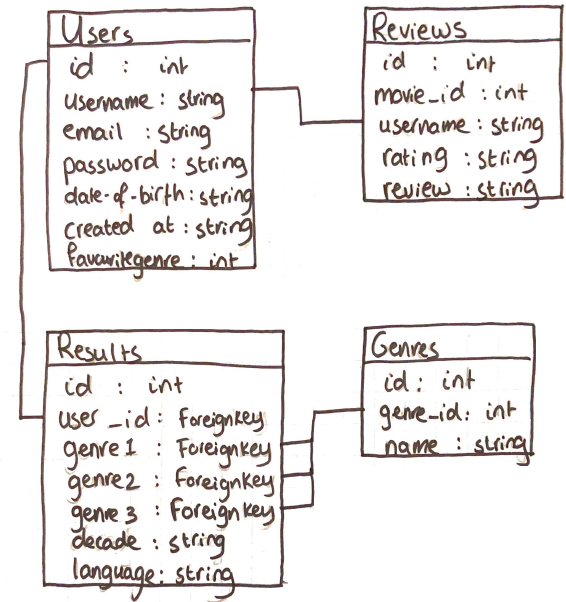 Users
id : int
username : string
email : string
password : string
date-of-birth : string
created at : string
favouritegenre : int
Reviews
id : int
movie_id : int
username : string
rating : string
review : string
Results
id : int
user_id : Foreignkey
genre1 : Foreignkey
genre2 : Foreignkey
genre3 : Foreignkey
decade : string
language : string
Genres
id : int
genre_id : int
name : string